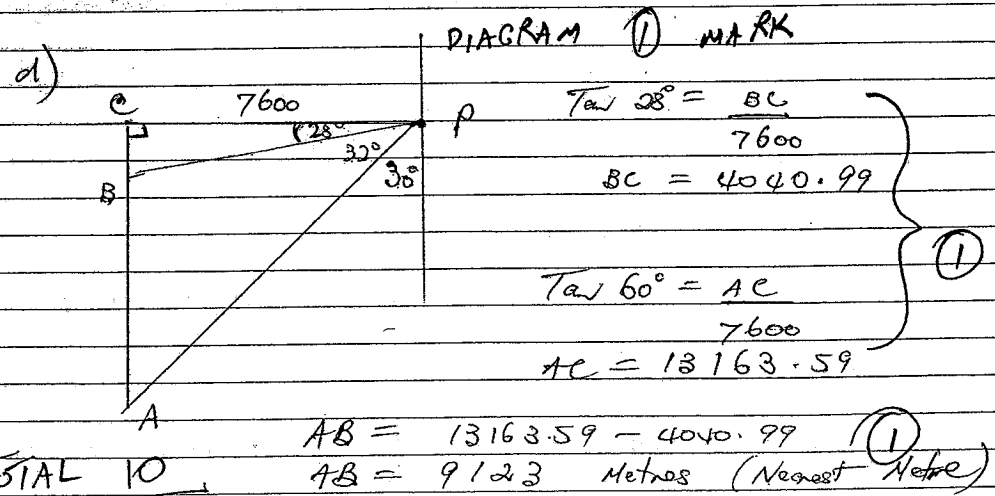 DIAGRAM ① MARK
d)
C 7600 P
28°
32°
30°
B
A
Tan 28° = BC
7600
BC = 4040.99
①
Tan 60° = AC
7600
AC = 13163.59
AB = 13163.59 - 4040.99 ①
10 AB = 9123 Metres (Nearest Metre)